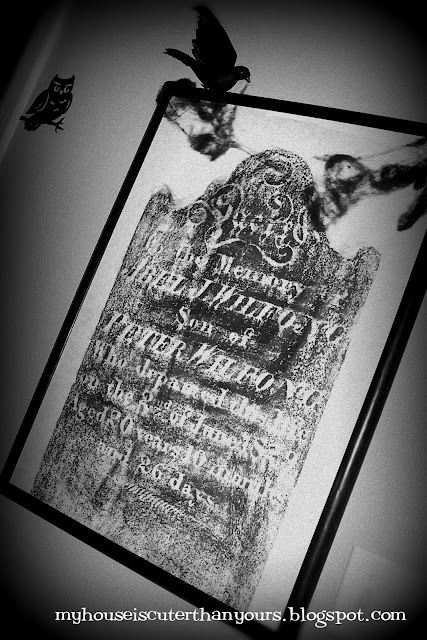 Sacred
To the Memory of
ABEL J. WILFONG
Son of
PETER WILFONG
Who departed this life
on the 2 of June
Aged 20 years 10 months
and 26 days
myhouseiscuterthanyours.blogspot.com